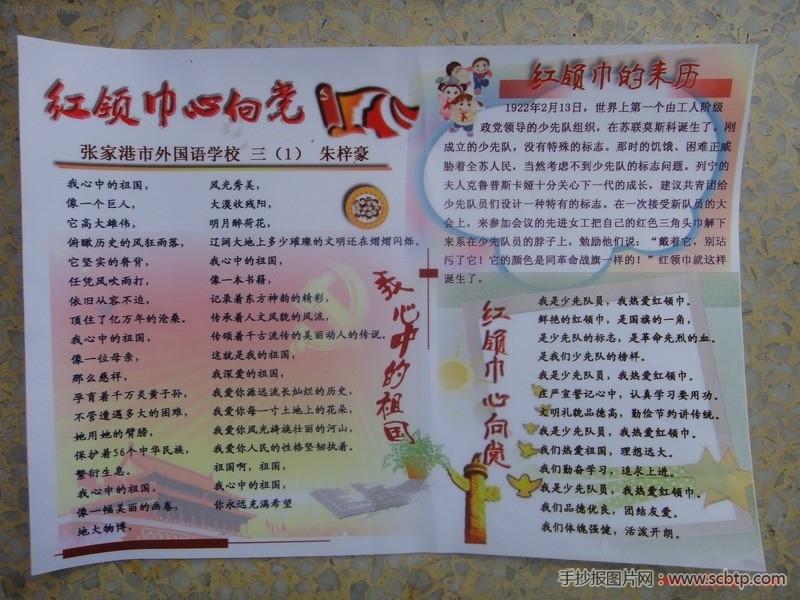 红领巾心向党
张家港市外国语学校 三（1） 朱梓豪
我心中的祖国，
像一个巨人，
它高大雄伟，
俯瞰历史的风狂雨落，
它坚实的脊背，
任凭风吹雨打，
依旧从容不迫，
顶住了亿万年的沧桑。
我心中的祖国，
像一位母亲，
那么慈祥，
孕育着千万炎黄子孙，
不管遭遇多大的困难，
她用她的臂膀，
保护着56个中华民族，
繁衍生息。
我心中的祖国，
像一幅美丽的画卷，
地大物博，
风光秀美，
大漠收残阳，
明月醉荷花，
辽阔大地上多少璀璨的文明还在熠熠闪烁。
我心中的祖国，
像一本书籍，
记录着东方神韵的精彩，
传承着人文风貌的风流，
传颂着千古流传的美丽动人的传说。
这就是我的祖国，
我深爱的祖国，
我爱你源远流长灿烂的历史，
我爱你每一寸土地上的花朵，
我爱你风光旖旎壮丽的河山，
我爱你人民的性格坚韧执着。
祖国啊，祖国，
我心中的祖国，
你永远充满希望
我心中的祖国
红领巾的来历
1922年2月13日，世界上第一个由工人阶级
政党领导的少先队组织，在苏联莫斯科诞生了。刚
成立的少先队，没有特殊的标志。那时的饥饿、困难正威
胁着全苏人民，当然考虑不到少先队的标志问题。列宁的
夫人克鲁普斯卡娅十分关心下一代的成长，建议共青团给
少先队员们设计一种特有的标志。在一次接受新队员的大
会上，来参加会议的先进女工把自己的红色三角头巾解下
来系在少先队员的脖子上，勉励他们说：“戴着它，别玷
污了它！它的颜色是同革命战旗一样的！”红领巾就这样
诞生了。
红领巾心向党
我是少先队员，我热爱红领巾。
鲜艳的红领巾，是国旗的一角，
是少先队的标志，是革命先烈的血。
是我们少先队的榜样。
我是少先队员，我热爱红领巾。
庄严宣誓记心中，认真学习要用功。
文明礼貌品德高，勤俭节约讲传统。
我是少先队员，我热爱红领巾。
我们热爱祖国，理想远大。
我们勤奋学习，追求上进。
我是少先队员，我热爱红领巾。
我们品德优良，团结友爱。
我们体魄强健，活泼开朗。
手抄报图片网：www.scbtp.com